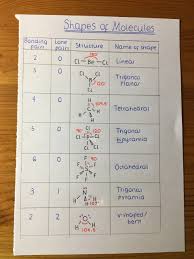 Shapes of Molecules
Bonding pairs Lone pairs Structure Name of shape
2 0 Cl - Be - Cl Linear
3 0 Cl B Cl Cl Trigonal Planar
4 0 H C H H H 109.5 Tetrahedral
5 0 90 120 Trigonal bipyramid
6 0 90 Octahedral
3 1 N H H H 107 Trigonal Pyramid
2 2 O H H 104.5 v-shaped/
bent